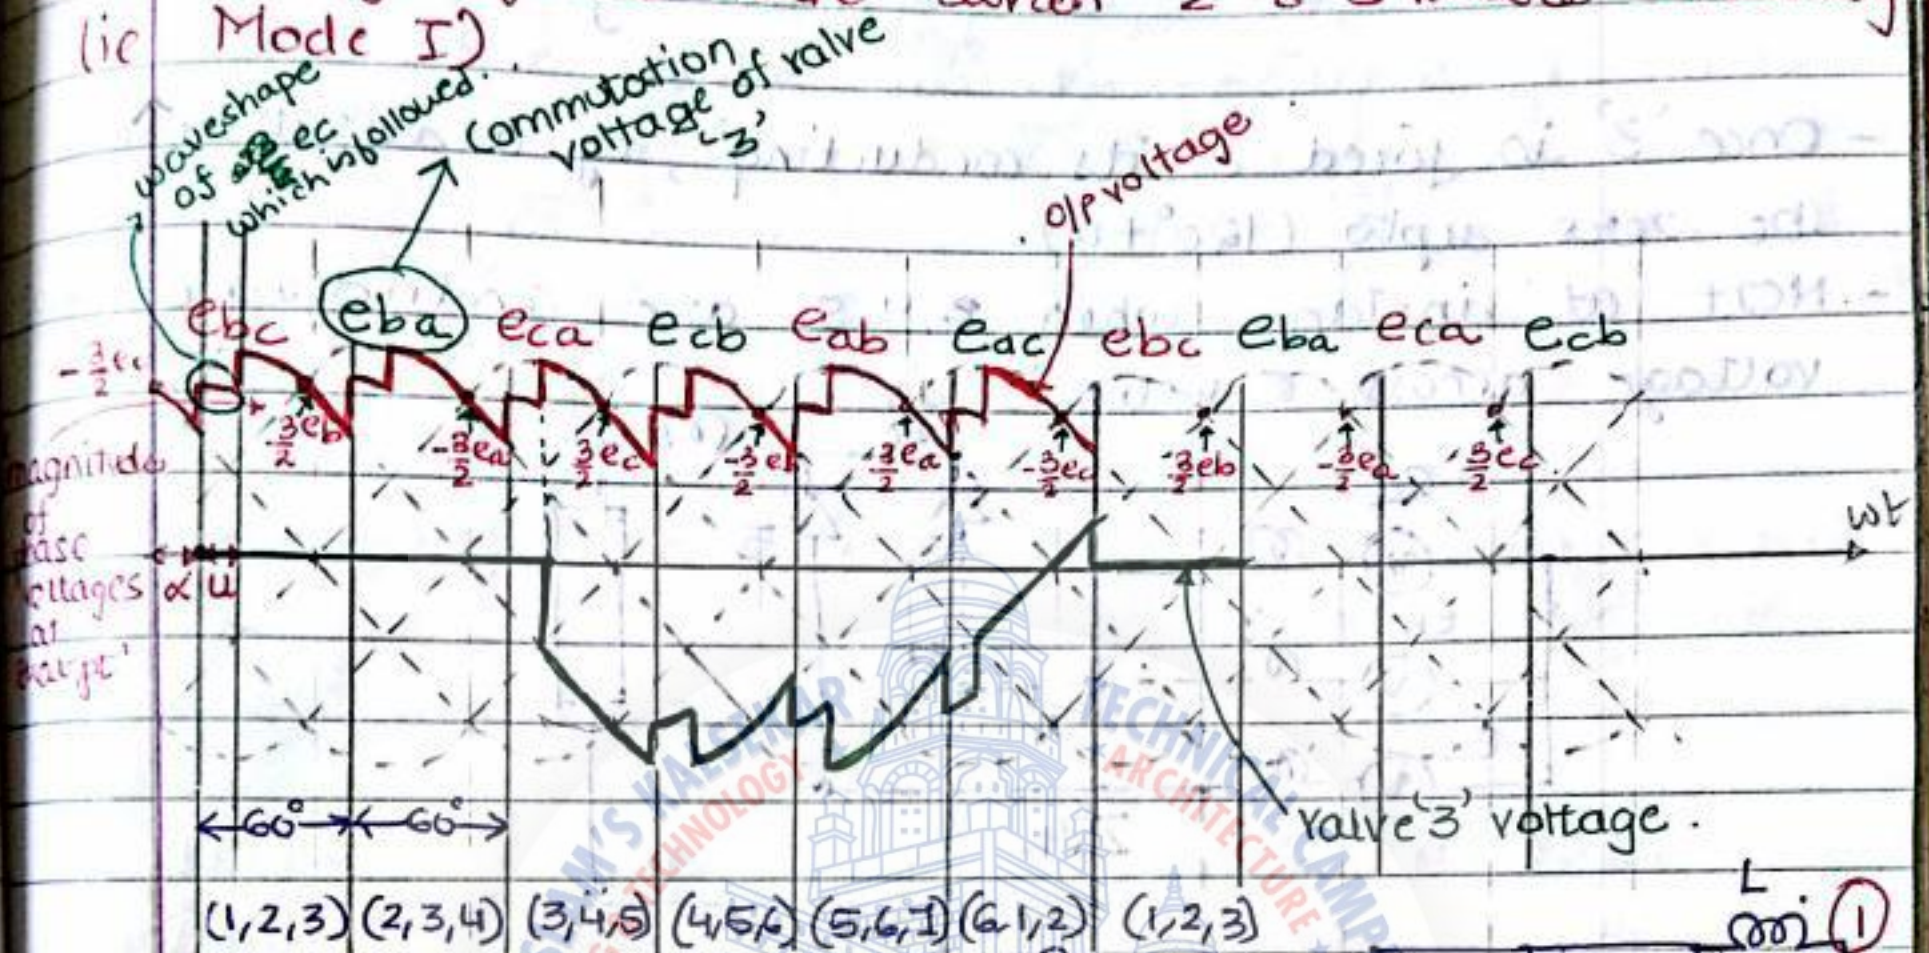 (ic Mode I)
waveshape
of ec
which is followed.
Commutation
voltage of valve
'3'
O/P voltage
ebc eba eca ecb eab eac ebc eba eca ecb
-3/2 ec
3/2 eb -3/2 ea 3/2 ec -3/2 e 3/2 ea -3/2 ec 3/2 eb -3/2 ea 3/2 ec
magnitude
of
voltages
at
α u
wt
valve '3' voltage.
60° 60°
(1,2,3) (2,3,4) (3,4,5) (4,5,6) (5,6,1) (6,1,2) (1,2,3)
L
1
KALSEKAR TECHNICAL CAMP
TECHNOLOGY ARCHITECTURE